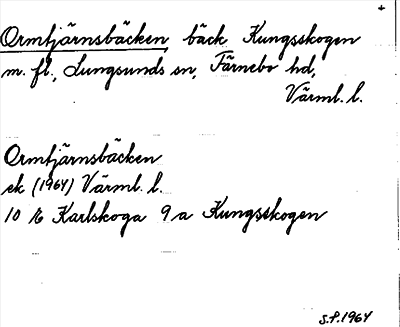 +
Ormtjärnsbäcken bäck Kungsskogen
m. fl., Lungsunds sn, Färnebo hd,
Värml. l.
Ormtjärnsbäcken
ek (1964) Värml. l.
10 E Karlskoga 9 a Kungsskogen
S.P. 1964